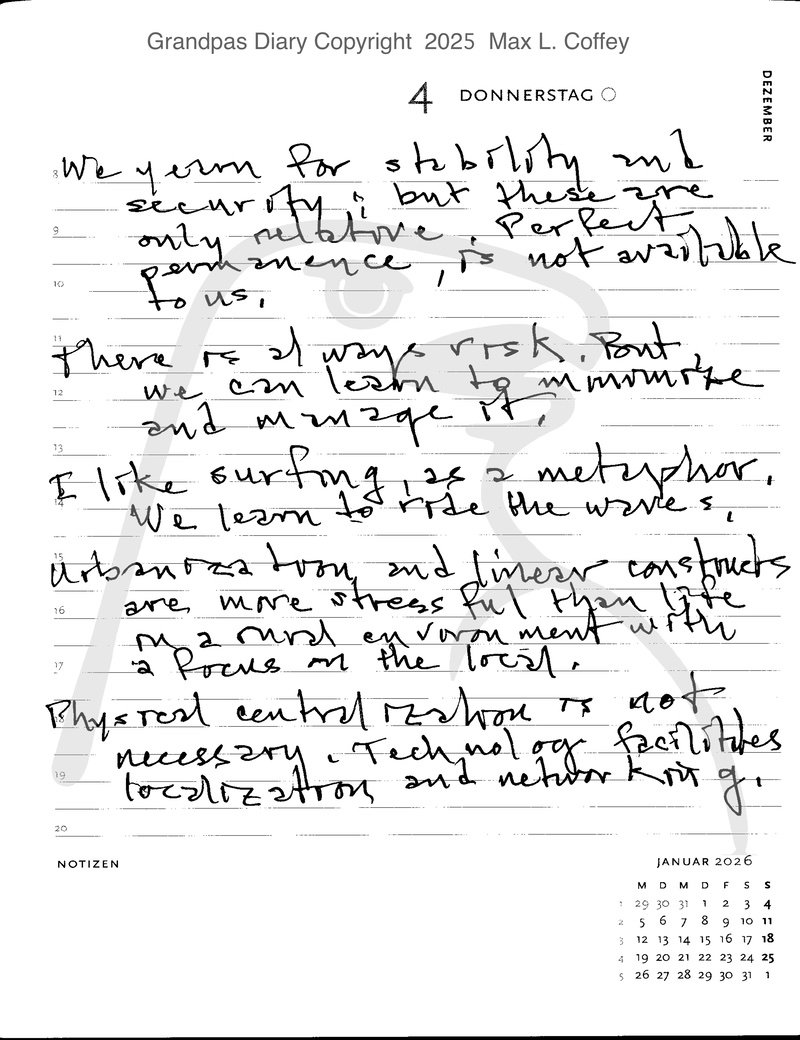 Grandpas Diary Copyright 2025 Max L. Coffey
4 DONNERSTAG
DEZEMBER
8 We yearn for stability and
security; but these are
9 only relative. Perfect
permanence, is not available
10 to us.
11 There is always risk. But,
12 we can learn to minimize
and manage it.
13
I like surfing, as a metaphor.
14 We learn to ride the waves.
15 Urbanization and linear constructs
16 are more stressful than life
in a rural environment with
17 a focus on the local.
18 Physical centralization is not
necessary. Technology facilitates
19 localization and networking.
20
NOTIZEN
JANUAR 2026
M D M D F S S
1 29 30 31 1 2 3 4
2 5 6 7 8 9 10 11
3 12 13 14 15 16 17 18
4 19 20 21 22 23 24 25
5 26 27 28 29 30 31 1